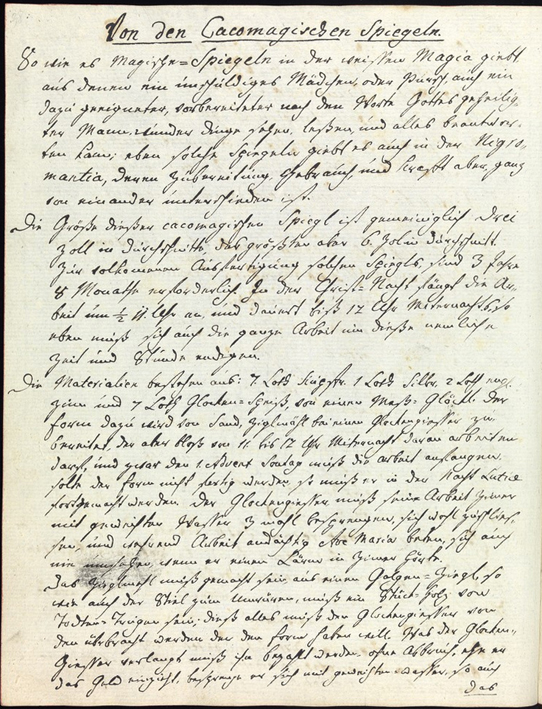 Von den Cacomagischen Spiegeln.
So wie es Magische=Spiegeln in der weissen Magia giebt
aus denen ein unschuldiges Mädchen, oder Pursch, auch ein
dazu geeigneter, vorbereiteter nach den Worte Gottes geheilig-
ter Mann, wunder dinge sehen, leßen, und alles beantwor-
ten kann; eben solche Spiegeln giebt es auch in der Nigro
mantia, deren Zubereitung, Gebrauch, und Krafft aber, ganz
von einander unterschieden ist.
Die Größe dießer cacomagischen Spiegl ist gemeiniglich drei
Zoll in durchschnitte, des größten aber 6. Zol in durchschnitt.
Zur volkomenen Ausfertigung solchen Spiegls, sind 3 Jahr
8 Monathe erforderlich. In der Christ=Nacht fängt die Ar-
beit um ½ 11. Uhr an, und dauert biß 12 Uhr Mitternachts, so
eben muß sich auch die ganze Arbeit um dieße nemliche
Zeit und Stunde endigen.
Die Materialien bestehen aus: 7. Loth Kupfr. 1 Loth Silbr. 2 Loth engl.
Zinn und 7 Loth Glocken=Speiß, von einem Meß=Glöckl. der
form dazu wird von Sand, Ziglmehl bei einem Glockengiesser zu
bereitet, der aber bloß von 11 bis 12 Uhr Mitternacht daran arbeiten
darf, und zwar den 1. Advent Sontag muß die Arbeit anfangen.
solte der form nicht fertig werden, so muß er in der Nacht Lutiae
fortgemacht werden. der Glockengiesser muß seine Arbeit Zimer
mit geweichten Wasser 3 mahl besprengen, sich wohl zuschließ-
sen, und während Arbeit andächtig Ave Maria beten, sich auch
nie umsehen, wenn er einen Lärm in Zimer hörte.
das Ziglmehl muß gemacht sein aus einem Galgen=Ziegl, so
wie auch der Stiel zum Umrüren, muß ein Stück=Holz von
Todten=Truhen sein, dieß alles muß dem Glockengiesser von
den überbracht werden der den form haben will. Was der Glocken-
Giesser verlangt muß ihm bezahlt werden ohne Abbruch, ehe er
das Geld einzieht, besprenge er sich mit geweichten Wasser, so auch
das